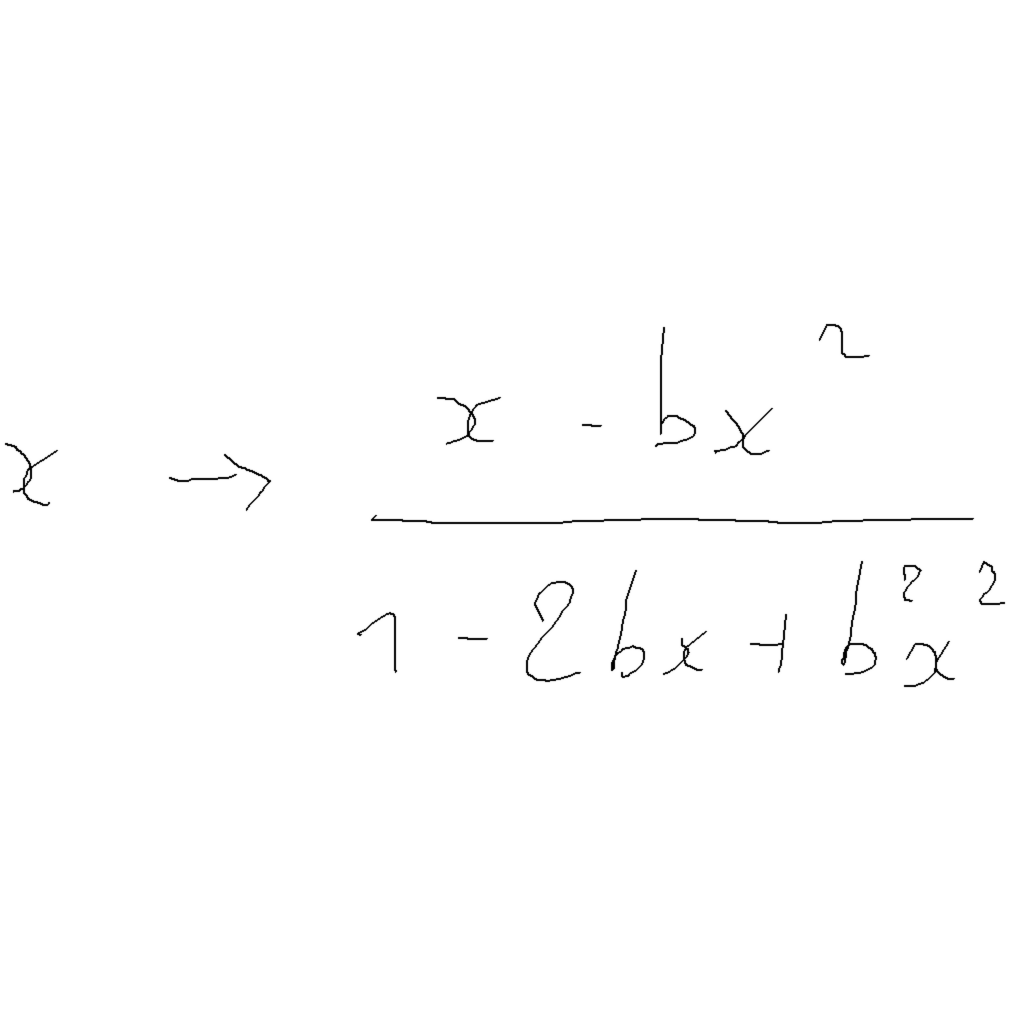 x → \frac{x - bx^2}{1 - 2bx + b^2x^2}